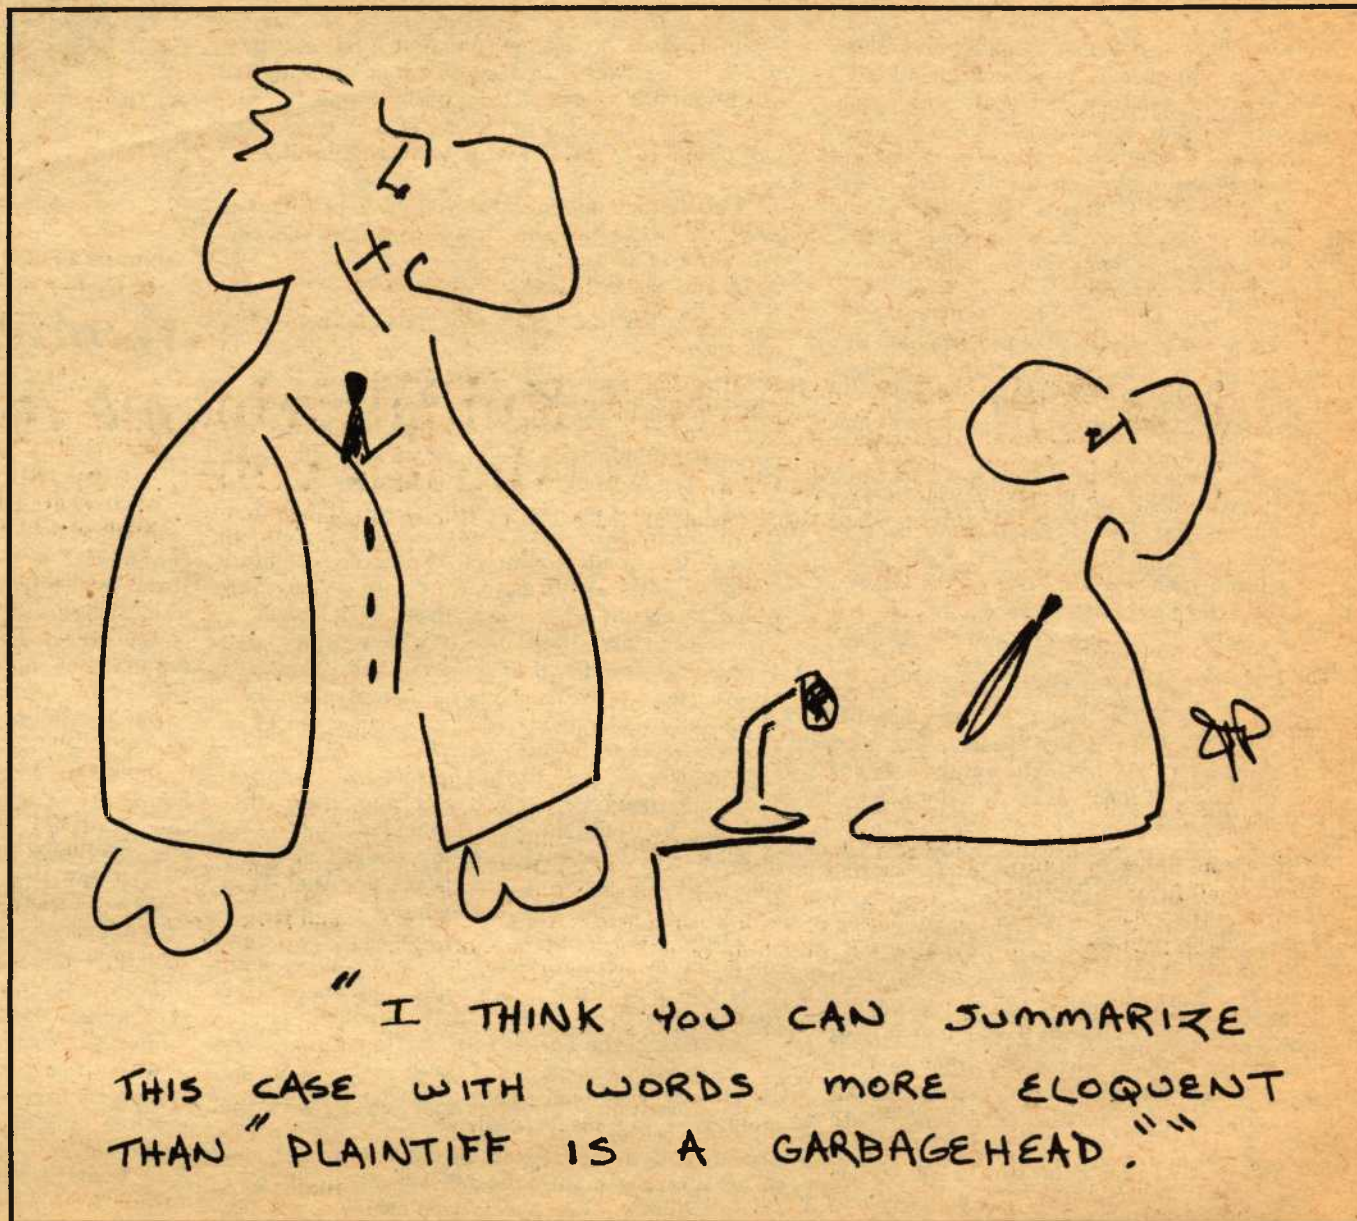 "I THINK YOU CAN SUMMARIZE
THIS CASE WITH WORDS MORE ELOQUENT
THAN "PLAINTIFF IS A GARBAGEHEAD.""